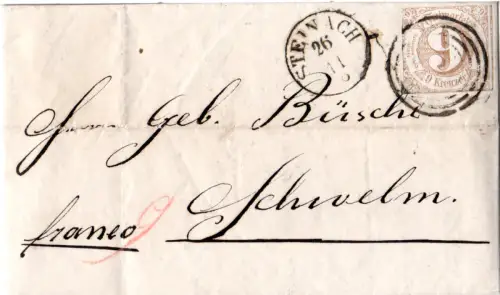 STEINACH
26
11
9
9 Kreuzer
Herrn Geb. Büsche
Schwelm.
franco 9